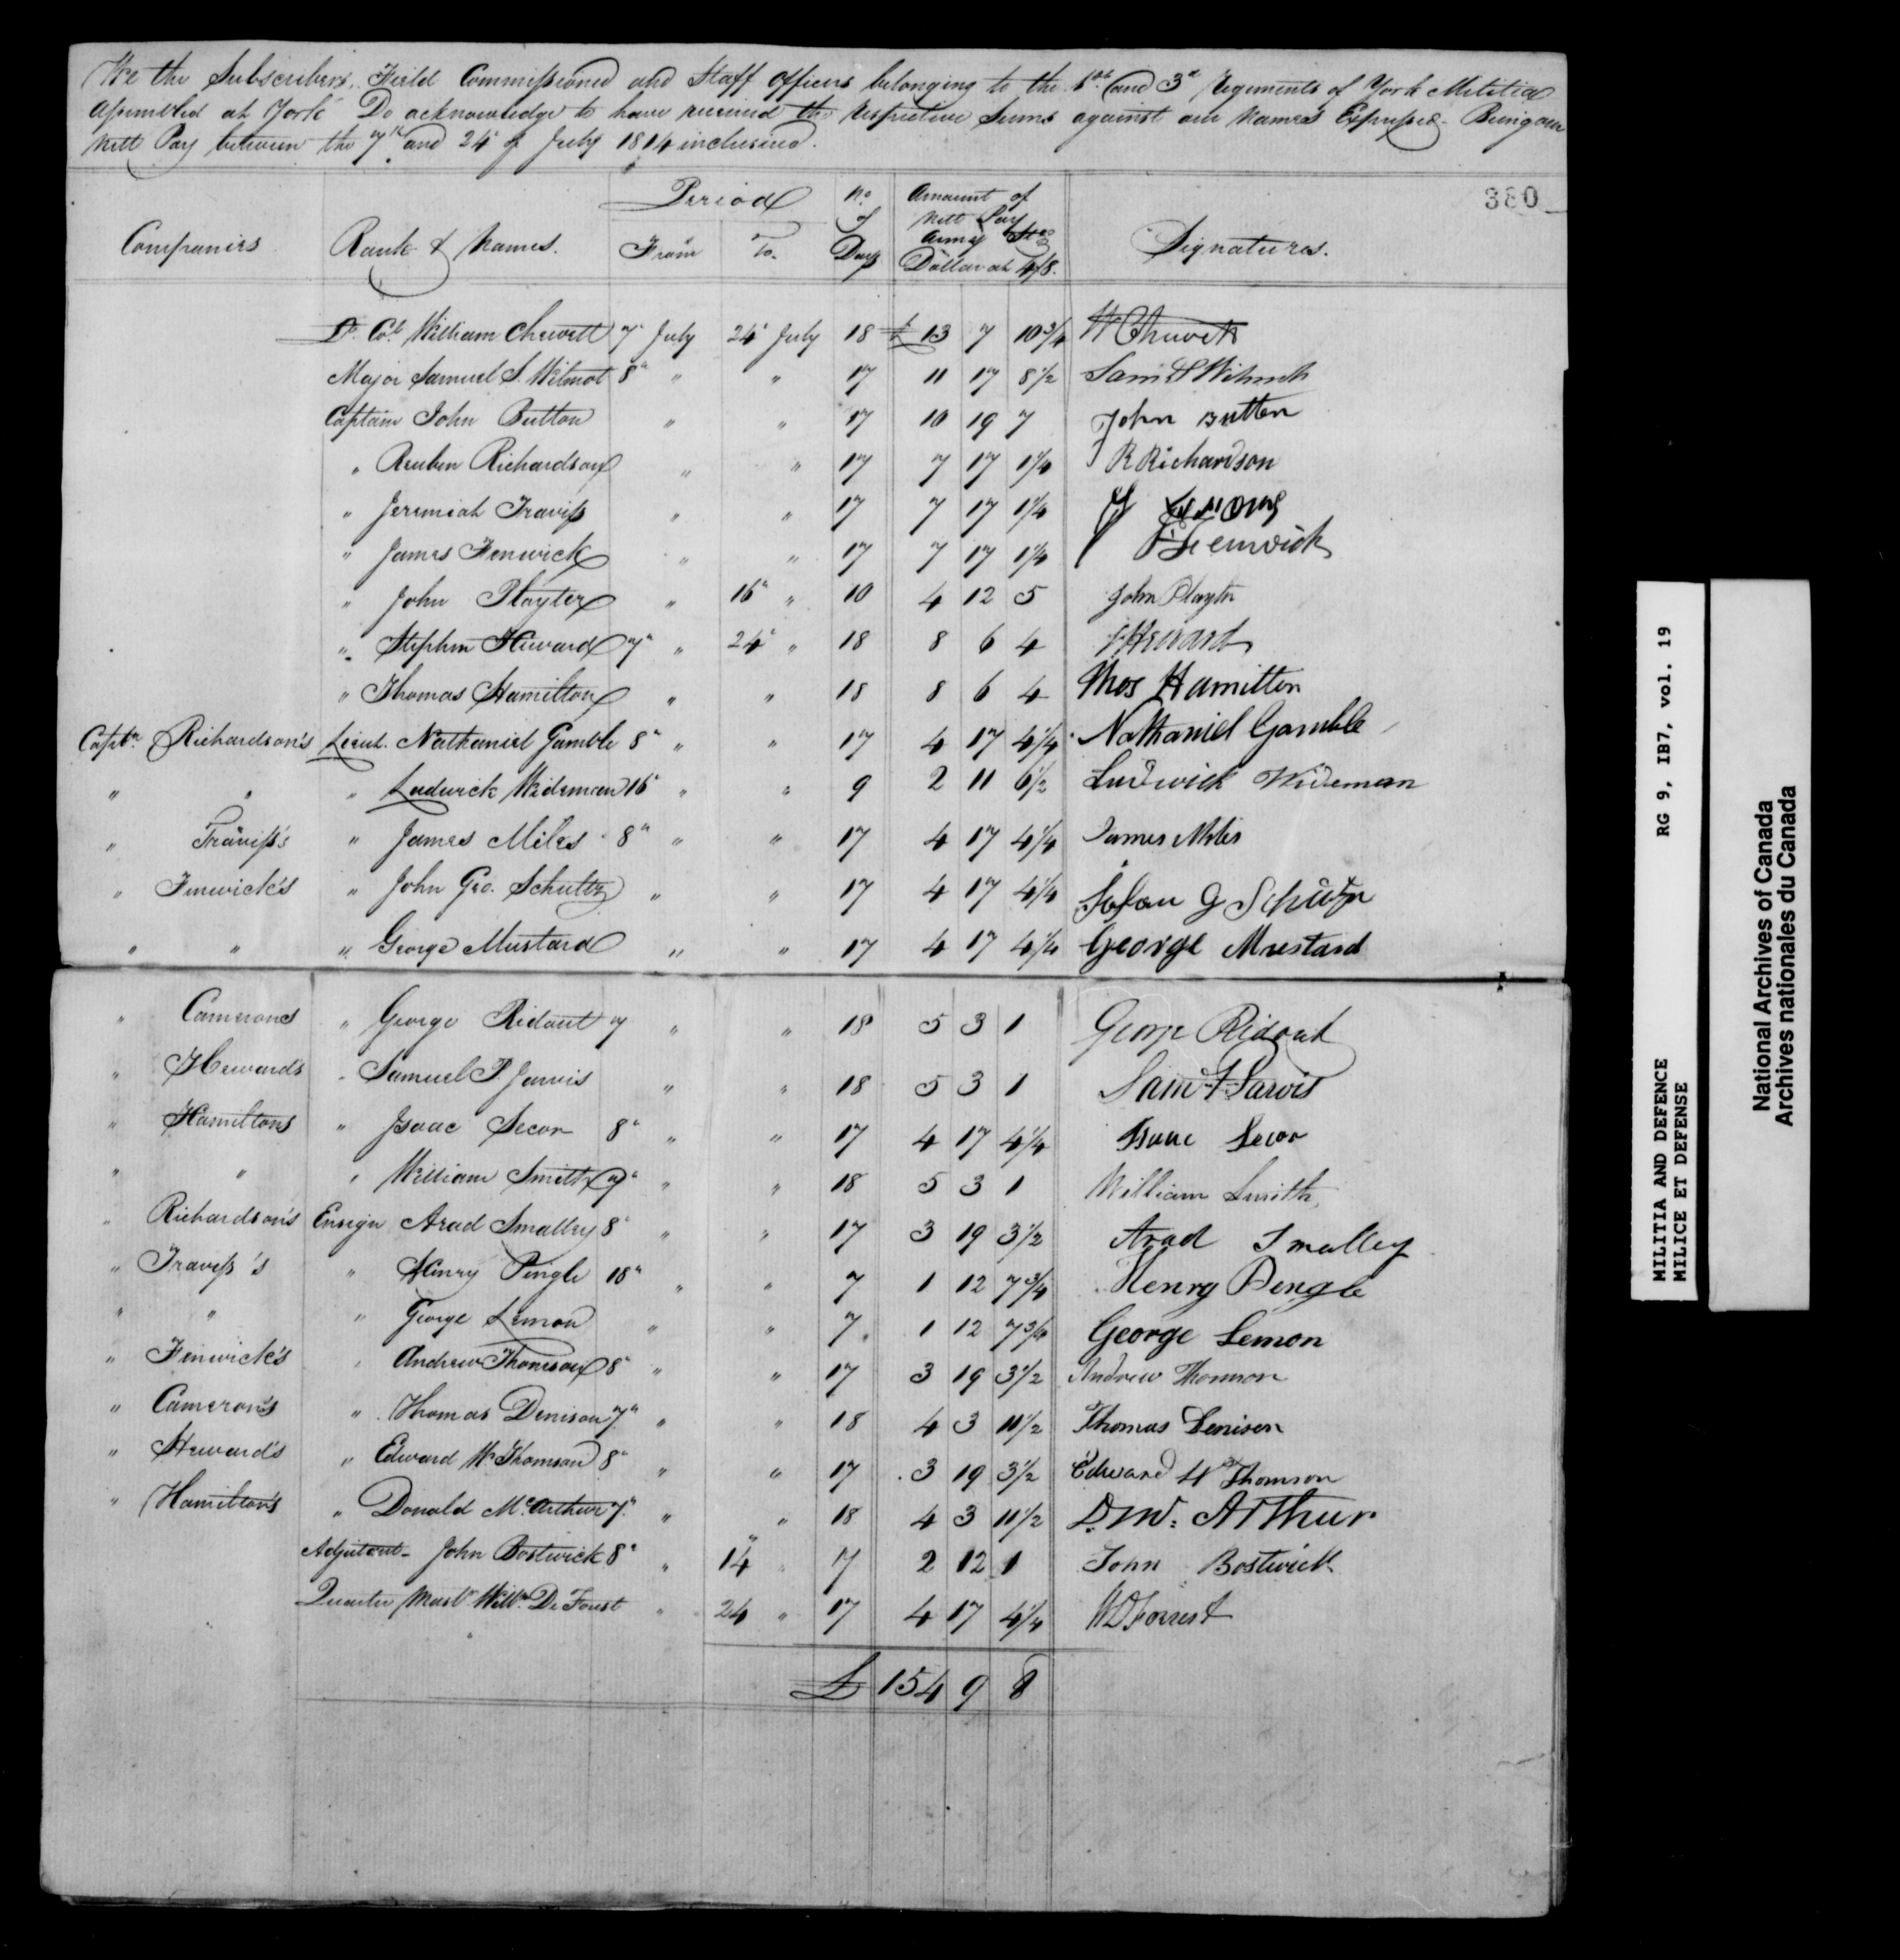 We the Subscribers, Field Commissioned and Staff Officers belonging to the 1st and 3d Regiments of York Militia
Assembled at York Do acknowledge to have received the respective Sums against our Names Expressed - Being our
Nett Pay between the 7th and 24th of July 1814 inclusive.
380
Companies Rank & Names. Period From To. No. of Days Amount of Nett Pay Army Dollar at 4/8. Signatures.
Lt. Col. William Chewett 7" July 24" July 18 £ 13 7 10 3/4 W Chewett
Major Samuel S. Wilmot 8" " " 17 11 17 8 1/2 Saml S Wilmot
Captain John Button " " 17 10 19 7 John Button
" Reuben Richardson " " 17 7 17 1 1/4 R Richardson
" Jeremiah Traviss " " 17 7 17 1 1/4
" James Fenwick " " 17 7 17 1 1/4 J Fenwick
" John Playter " 16" " 10 4 12 5 John Playter
" Stephen Heward 7" " 24" " 18 8 6 4 S Heward
" Thomas Hamilton " " 18 8 6 4 Thos Hamilton
Captn. Richardson's Lieut. Nathaniel Gamble 8" " " 17 4 17 4 1/4 Nathaniel Gamble
" " " Ludwick Wideman 16" " " 9 2 11 6 1/2 Ludwick Wideman
" Traviss's " James Miles 8" " " 17 4 17 4 1/4 James Miles
" Fenwick's " John Geo. Schultz " " 17 4 17 4 1/4 Johan G Schultz
" " " George Mustard " " 17 4 17 4 1/4 George Mustard
" Camerons " George Ridout 7 " " 18 5 3 1 George Ridout
" Heward's " Samuel P. Jarvis " " 18 5 3 1 Saml P. Jarvis
" Hamiltons " Isaac Secor 8" " " 17 4 17 4 1/4 Isaac Secor
" " " William Smith 7" " " 18 5 3 1 William Smith
" Richardson's Ensign Arad Smalley 8" " " 17 3 19 3 1/2 Arad Smalley
" Traviss's " Henry Pingle 18" " " 7 1 12 7 3/4 Henry Pengle
" " " George Lemon " " 7 1 12 7 3/4 George Lemon
" Fenwick's " Andrew Thomson 8" " " 17 3 19 3 1/2 Andrew Thomson
" Cameron's " Thomas Denison 7" " " 18 4 3 11 1/2 Thomas Denison
" Heward's " Edward W. Thomson 8" " " 17 3 19 3 1/2 Edward W Thomson
" Hamilton's " Donald McArthur 7" " " 18 4 3 11 1/2 D. Mc: Arthur
Adjutant - John Bostwick 8" " 14" " 7 2 12 1 John Bostwick
Quarter Mastr. Willm. De Forest " 24 " 17 4 17 4 1/4 W D Forrest
£ 154 9 8
MILITIA AND DEFENCE RG 9, IB7, vol. 19
MILICE ET DEFENSE
National Archives of Canada
Archives nationales du Canada